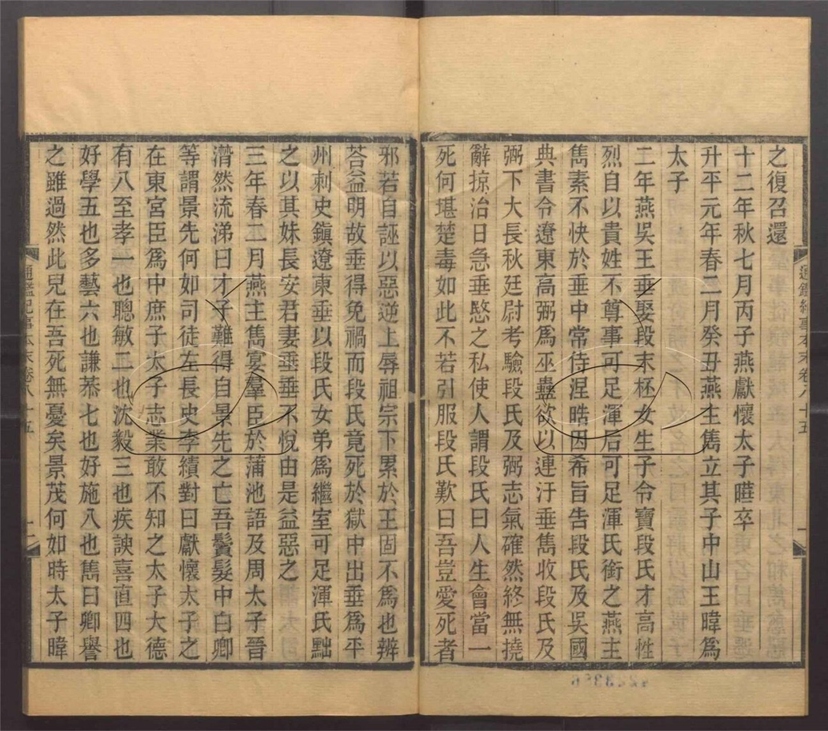 之復召還
十二年秋七月丙子燕獻懷太子曄卒
升平元年春二月癸丑燕主雋立其子中山王暐爲
太子
二年燕吳王垂娶段末柸女生子令寶段氏才高性
烈自以貴姓不尊事可足渾后可足渾氏銜之燕主
雋素不快於垂中常侍涅晧因希旨告段氏及吳國
典書令遼東高弼爲巫蠱欲以連汙垂雋收段氏及
弼下大長秋廷尉考驗段氏及弼志氣確然終無撓
辭掠治日急垂愍之私使人謂段氏曰人生會當一
死何堪楚毒如此不若引服段氏歎曰吾豈愛死者
通鑑紀事本末卷八十五
邪若自誣以惡逆上辱祖宗下累於王固不爲也辨
荅益明故垂得免禍而段氏竟死於獄中出垂爲平
州刺史鎮遼東垂以段氏女弟爲繼室可足渾氏黜
之以其妹長安君妻垂垂不悅由是益惡之
三年春二月燕主雋宴羣臣於蒲池語及周太子晉
潸然流涕曰才子難得自景先之亡吾鬢髮中白卿
等謂景先何如司徒左長史李績對曰獻懷太子之
在東宮臣爲中庶子太子志業敢不知之太子大德
有八至孝一也聰敏二也沈毅三也疾諛喜直四也
好學五也多藝六也謙恭七也好施八也雋曰卿譽
之雖過然此兒在吾死無憂矣景茂何如時太子暐
通鑑紀事本末卷八十五